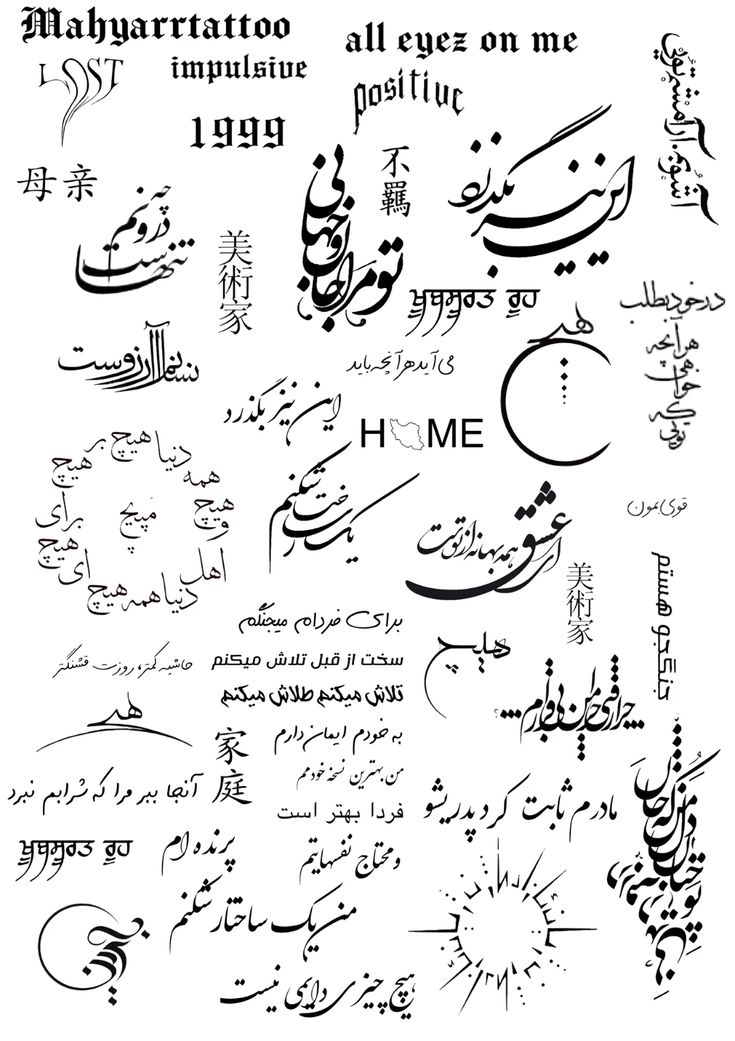 Mahyarrtattoo
all eyez on me
LOST
impulsive
positive
1999
آشوبم، آرامشم تویی
母亲
不羈
این نیز بگذرد
تو مرا جان و جهانی
درونم
تنهاست
美術家
ਖੂਬਸੂਰਤ ਰੂਹ
در خود بطلب
هر آنچه
خواهی
که
تویی
هیچ
می آید هر آنچه باید
این نیز بگذرد
HOME
دنیا همه هیچ
و اهل دنیا همه هیچ
ای هیچ
برای هیچ
بر هیچ
مپیچ
یک درخت شکنم
قوی بمون
ای عشق همه بهانه از توست
美術家
جنگجو هستم
برای فردام میجنگم
سخت از قبل تلاش میکنم
تلاش میکنم طلاش میکنم
هیچ
حاشیه کمتر، روزت قشنگتر
هیچ
چرا رفتی چرا من بی قرارم
家庭
به خودم ایمان دارم
من بهترین نسخه خودمم
آنجا ببر مرا که شرابم نبرد
فردا بهتر است
مادرم ثابت کرد پدر یشو
ਖੂਬਸੂਰਤ ਰੂਹ
پرنده ام
و محتاج نفسهایتم
من یک ساختار شکنم
هیچ چیزی دایمی نیست